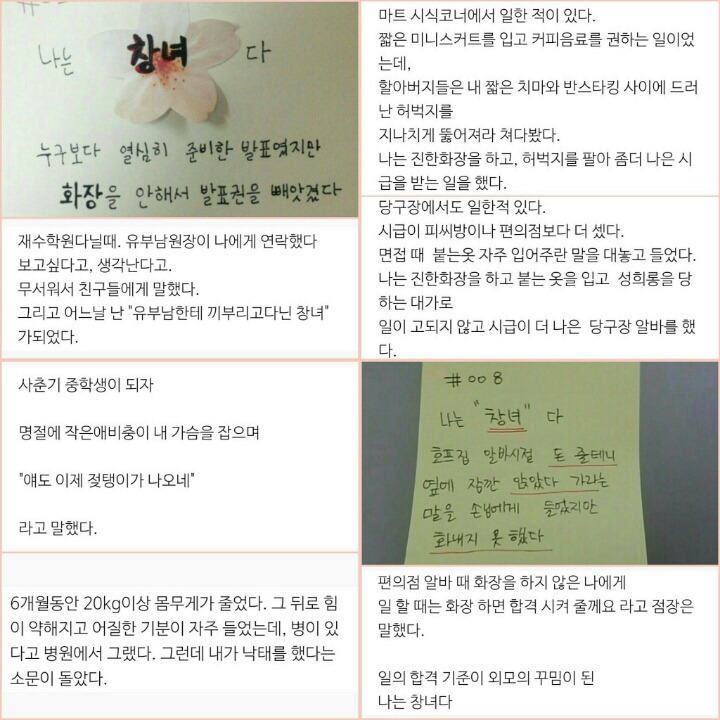 나는 창녀 다
누구보다 열심히 준비한 발표였지만
화장을 안해서 발표권을 빼앗겼다
재수학원다닐때. 유부남원장이 나에게 연락했다
보고싶다고, 생각난다고.
무서워서 친구들에게 말했다.
그리고 어느날 난 "유부남한테 끼부리고다닌 창녀"
가되었다.
사춘기 중학생이 되자
명절에 작은애비충이 내 가슴을 잡으며
"얘도 이제 젖탱이가 나오네"
라고 말했다.
6개월동안 20kg이상 몸무게가 줄었다. 그 뒤로 힘
이 약해지고 어질한 기분이 자주 들었는데, 병이 있
다고 병원에서 그랬다. 그런데 내가 낙태를 했다는
소문이 돌았다.
마트 시식코너에서 일한 적이 있다.
짧은 미니스커트를 입고 커피음료를 권하는 일이었
는데,
할아버지들은 내 짧은 치마와 반스타킹 사이에 드러
난 허벅지를
지나치게 뚫어져라 쳐다봤다.
나는 진한화장을 하고, 허벅지를 팔아 좀더 나은 시
급을 받는 일을 했다.
당구장에서도 일한적 있다.
시급이 피씨방이나 편의점보다 더 셌다.
면접 때 붙는옷 자주 입어주란 말을 대놓고 들었다.
나는 진한화장을 하고 붙는 옷을 입고 성희롱을 당
하는 대가로
일이 고되지 않고 시급이 더 나은 당구장 알바를 했
다.
#008
나는 "창녀" 다
호프집 알바시절 돈 줄테니
옆에 잠깐 앉았다 가라는
말을 손님에게 들었지만
화내지 못했다
편의점 알바 때 화장을 하지 않은 나에게
일 할 때는 화장 하면 합격 시켜 줄께요 라고 점장은
말했다.
일의 합격 기준이 외모의 꾸밈이 된
나는 창녀다